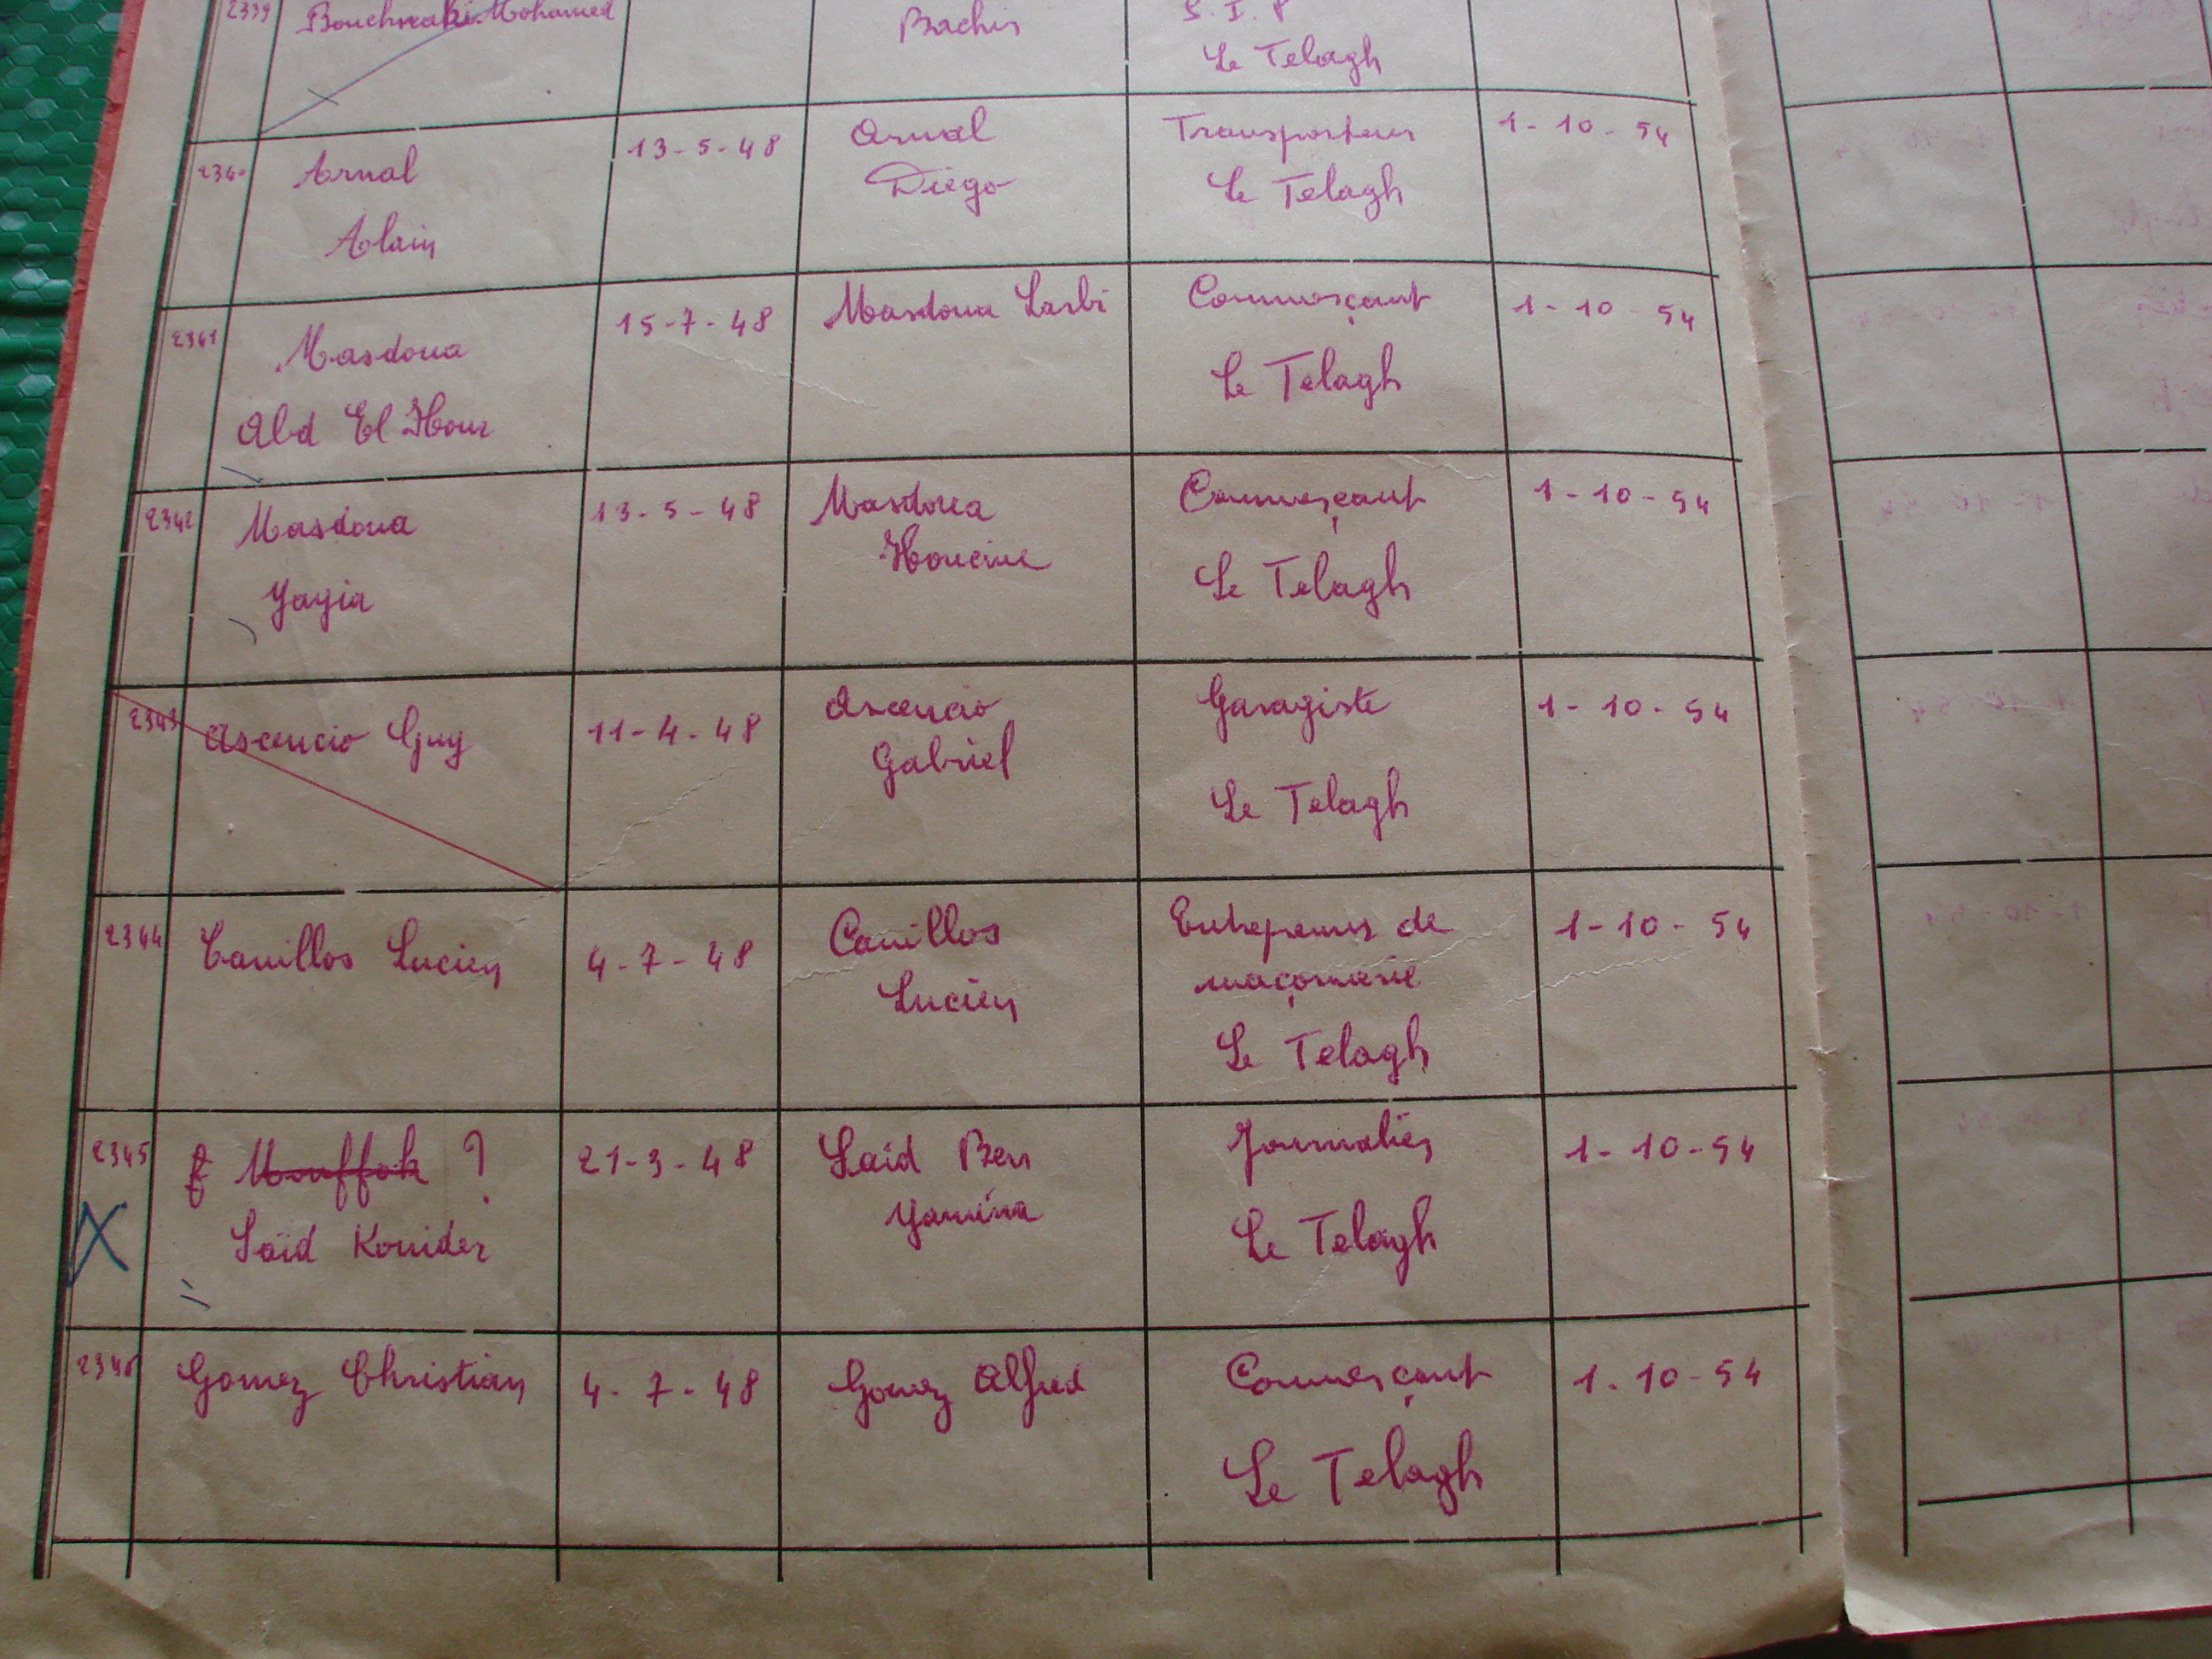 2339 Bouchraki Mohamed Bachir S.I.P
Le Telagh
2340 Arnal 13-5-48 Arnal Transporteur 1-10-54
Alain Diégo Le Telagh
2341 Masdoua 15-7-48 Masdoua Larbi Commerçant 1-10-54
Abd El Hour Le Telagh
2342 Masdoua 13-5-48 Masdoua Commerçant 1-10-54
Yayia Houcine Le Telagh
2343 Ascencio Guy 11-4-48 Ascencio Garagiste 1-10-54
Gabriel Le Telagh
2344 Canillos Lucien 4-7-48 Canillos Entrepreneur de 1-10-54
Lucien maçonnerie
Le Telagh
2345 Mouffok ? 21-3-48 Saïd Ben Journalier 1-10-54
Saïd Kouider Yamina Le Telagh
2346 Gomez Christian 4-7-48 Gomez Alfred Commerçant 1-10-54
Le Telagh